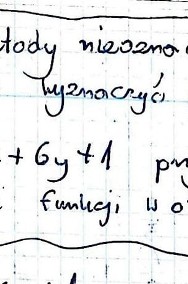 tody nieozna
wyznaczyć
+ 6y + 1 prz
funkcji w o